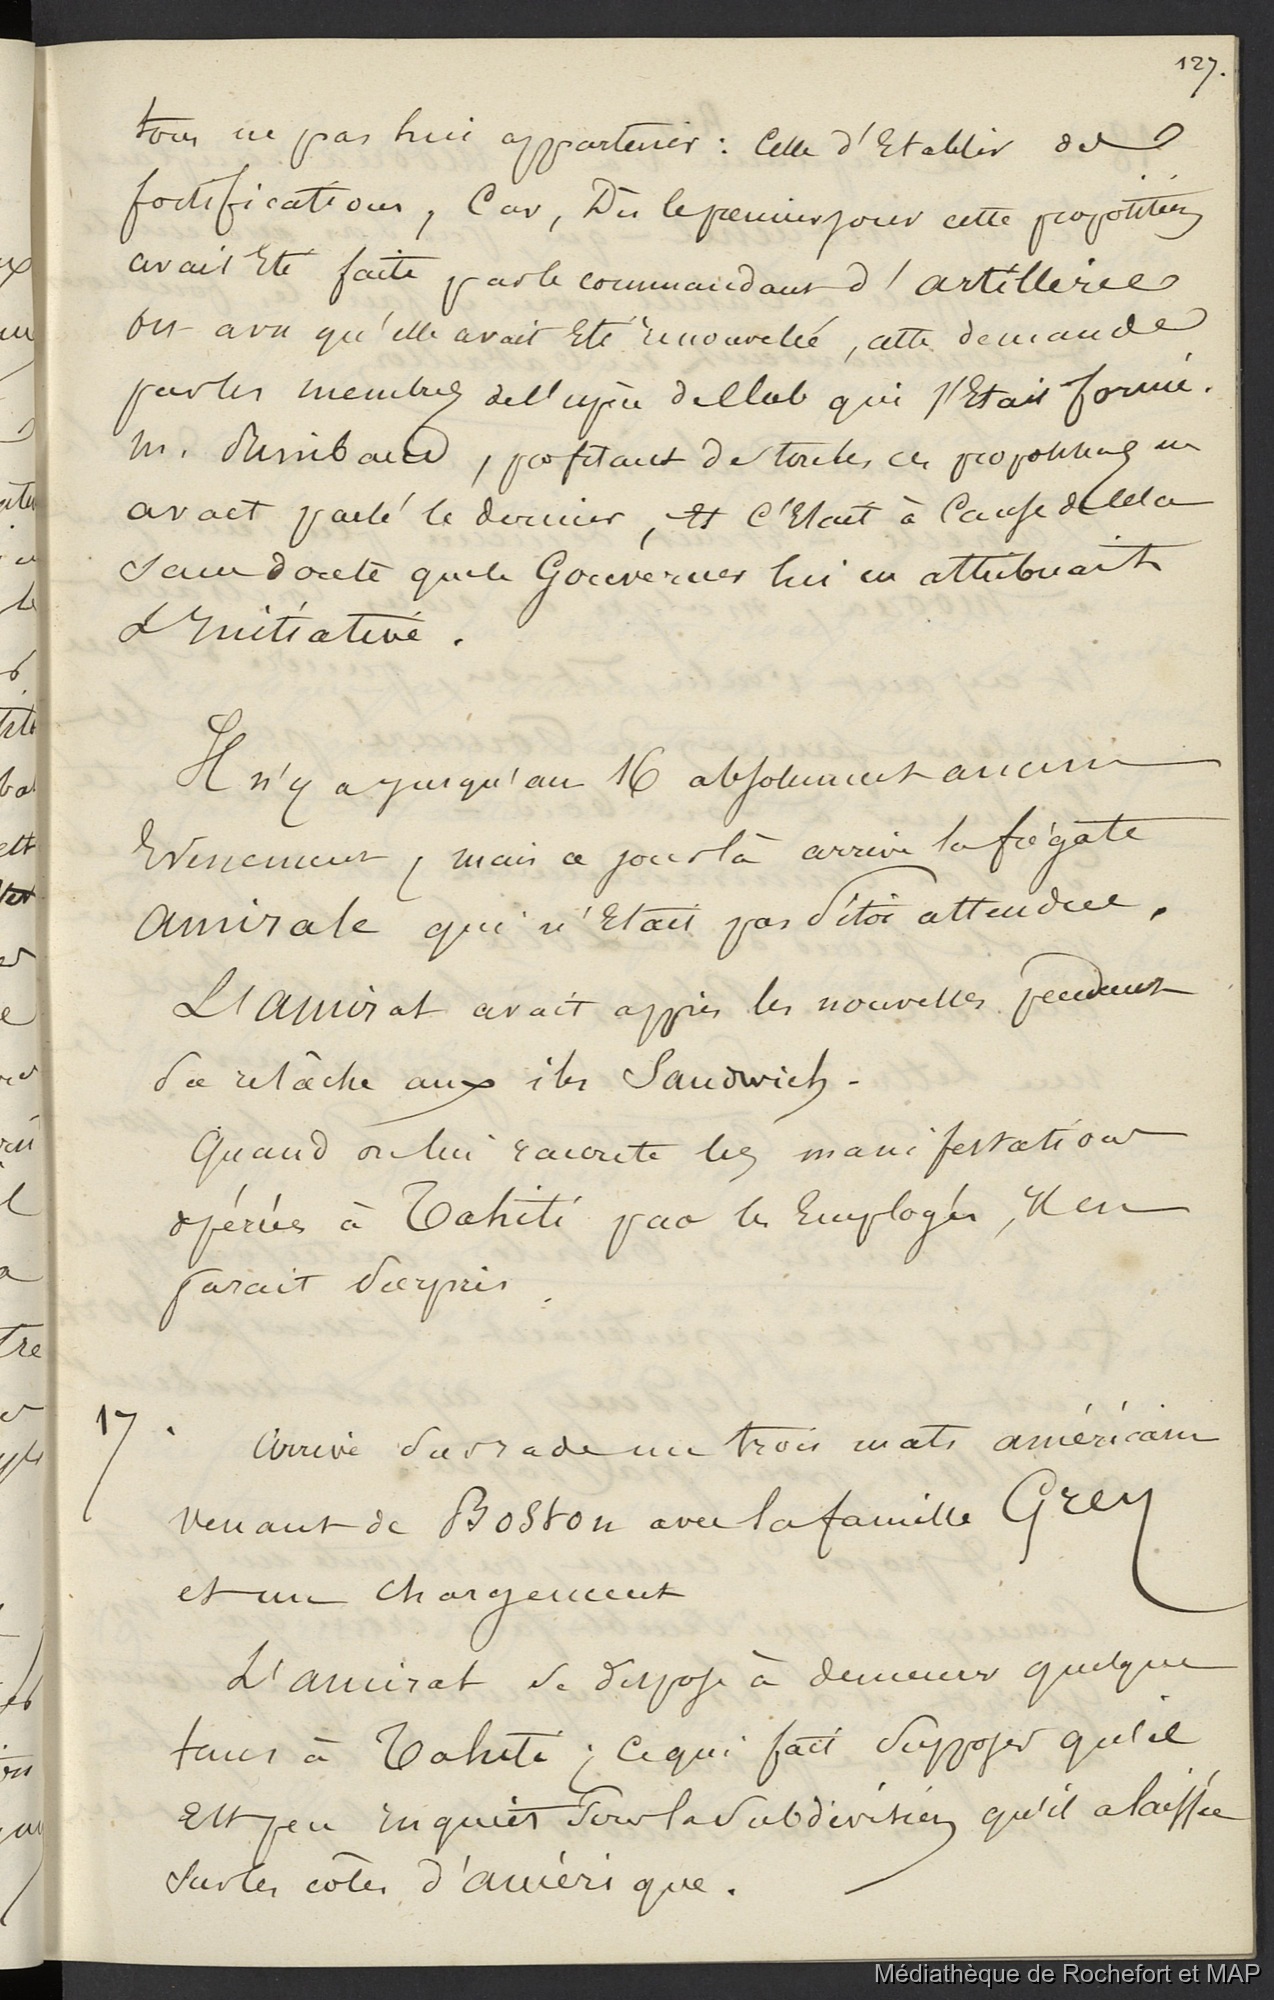 127.
tous ne pas lui appartenir : Celle d'Etablir des
fortifications, Car, Dès le premier jour cette proposition
avait Eté faite par le commandant d'artillerie
on a vu qu'elle avait Eté renouvelée, cette demande
par les membres de l'espèce de Club qui s'Etait formé.
M. , profitant de toutes ces propositions en
avait parlé le dernier, Et C'Etait à Cause de cela
sans doute que le Gouverneur lui en attribuait
L'Initiative.
Il n'y a jusqu'au 16 absolument aucun
Evènement, mais ce jour là arrive la frégate
amirale qui n'Etait pas sitôt attendue.
L'amiral avait appris les nouvelles pendant
sa relâche aux iles Sandwich -
Quand on lui raconte les manifestations
opérées à Tahiti par les Employés, Il en
parait surpris.
17. Arrivé sur rade un trois mats américain
venant de Boston avec la famille Grey
et un chargement
L'amiral se dispose à demeurer quelque
tems à Tahiti ; Ce qui fait supposer qu'il
Est peu inquiet sur la subdivision qu'il a laissée
sur les côtes d'amérique.
Médiathèque de Rochefort et MAP